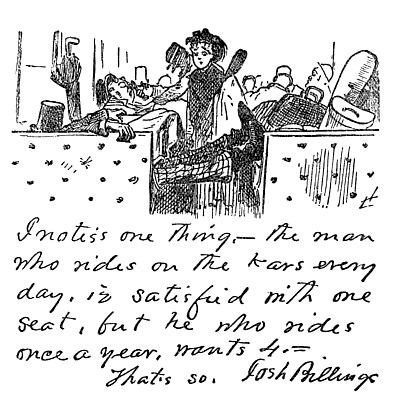 I notiss one thing,— the man
who rides on the kars every
day, iz satisfied with one
seat, but he who rides
once a year, wants 4.=
Thats so. Josh Billings